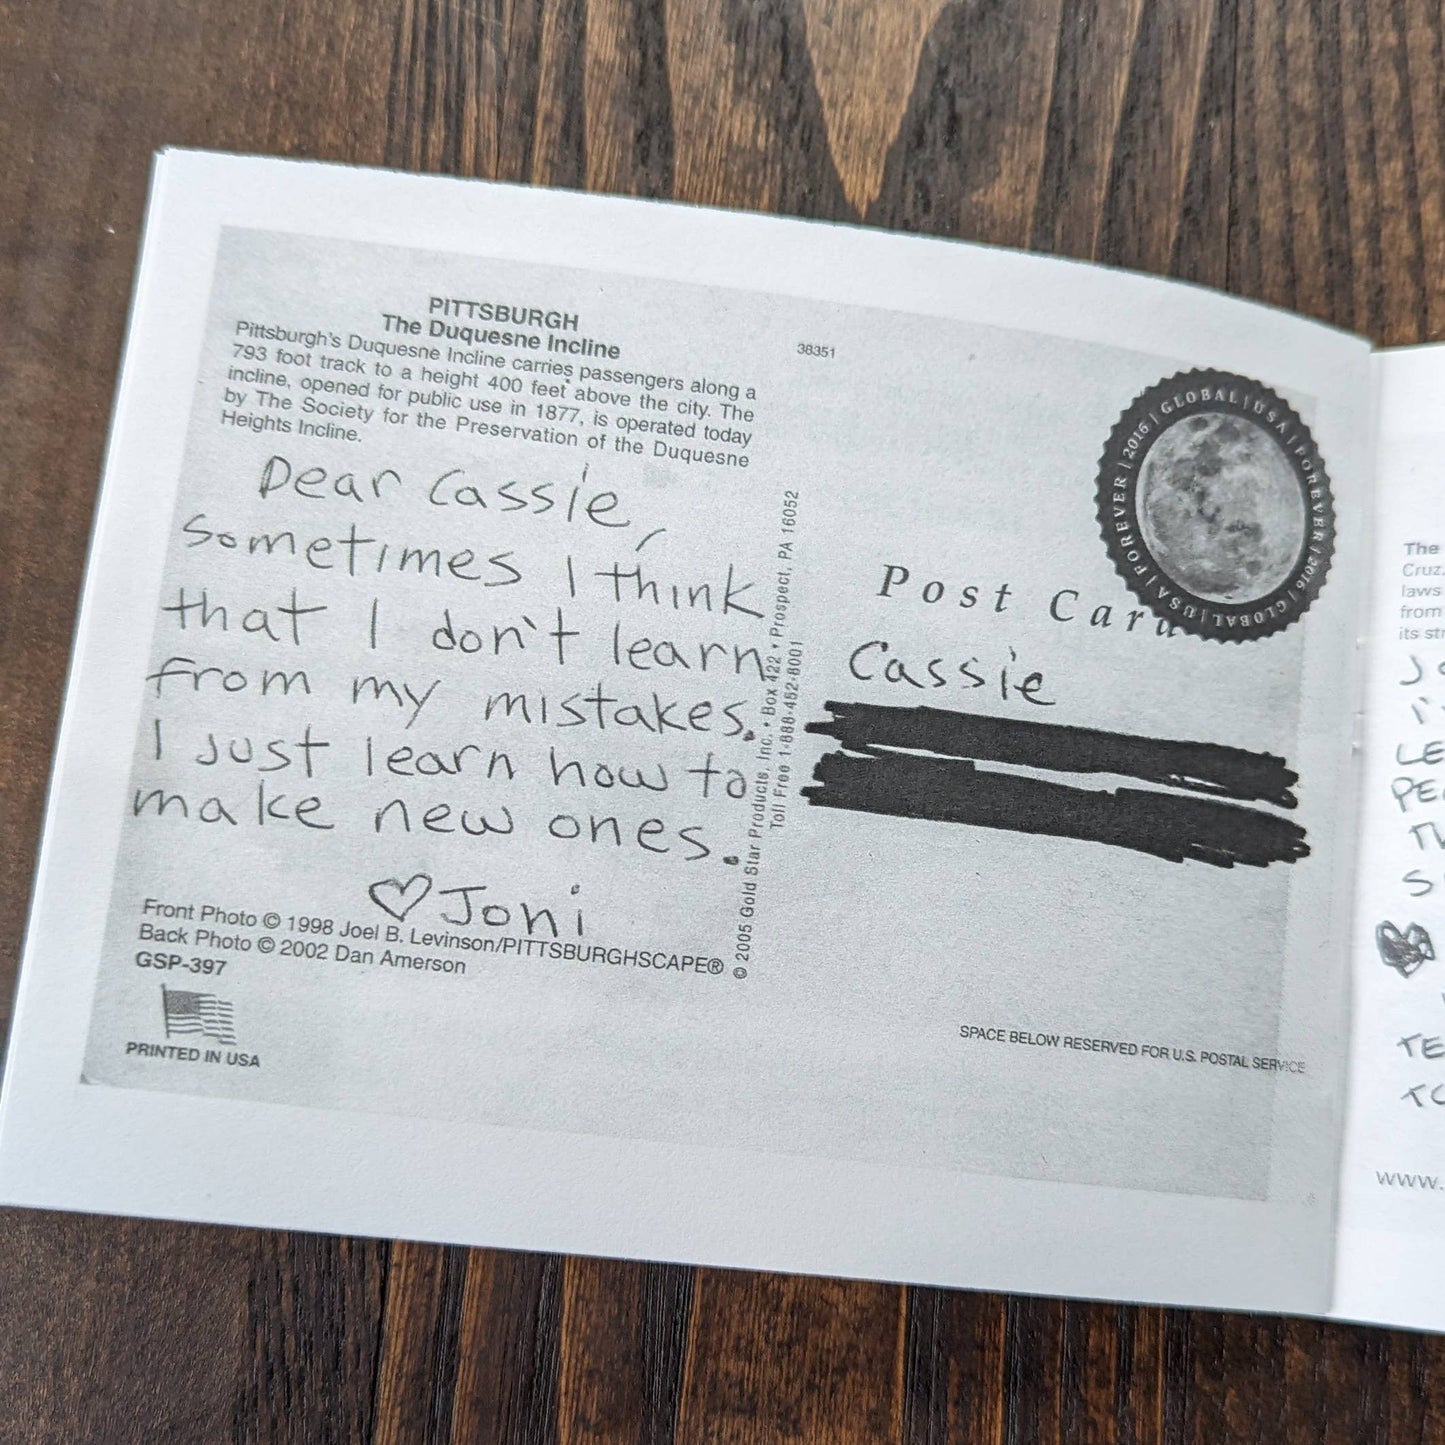 PITTSBURGH
The Duquesne Incline
Pittsburgh's Duquesne Incline carries passengers along a
793 foot track to a height 400 feet above the city. The
incline, opened for public use in 1877, is operated today
by The Society for the Preservation of the Duquesne
Heights Incline.
Dear Cassie,
sometimes I think
that I don't learn
from my mistakes.
I just learn how to
make new ones.
♡ Joni
Front Photo © 1998 Joel B. Levinson/PITTSBURGHSCAPE®
Back Photo © 2002 Dan Amerson
GSP-397
PRINTED IN USA
© 2005 Gold Star Products, Inc. • Box 422 • Prospect, PA 16052
Toll Free 1-888-452-8001
38351
GLOBAL | USA | FOREVER | 2016 | GLOBAL | USA | FOREVER | 2016
Post Card
Cassie
SPACE BELOW RESERVED FOR U.S. POSTAL SERVICE
The
Cruz.
laws
from
its
LE
TE
www.